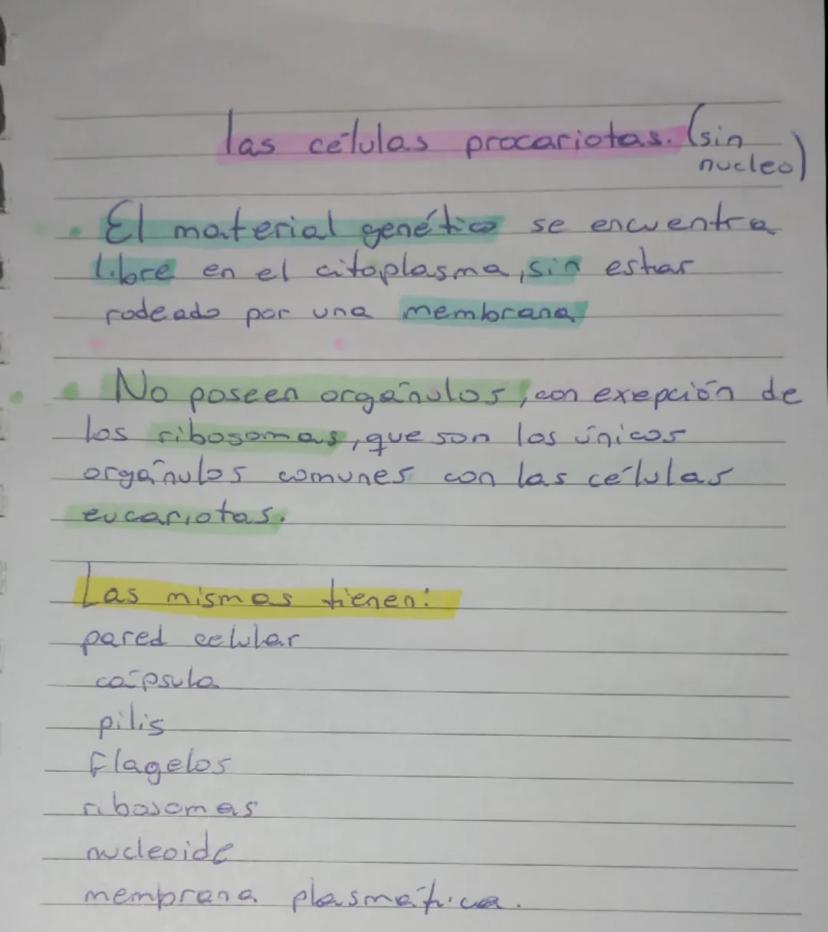 las células procariotas. (sin
nucleo)
• El material genético se encuentra
libre en el citoplasma, sin estar
rodeado por una membrana
• No poseen orgánulos, con exepción de
los ribosomas, que son los únicos
orgánulos comunes con las células
eucariotas.
Las mismas tienen:
pared celular
cápsula
pilis
flagelos
ribosomas
nucleoide
membrana plasmática.